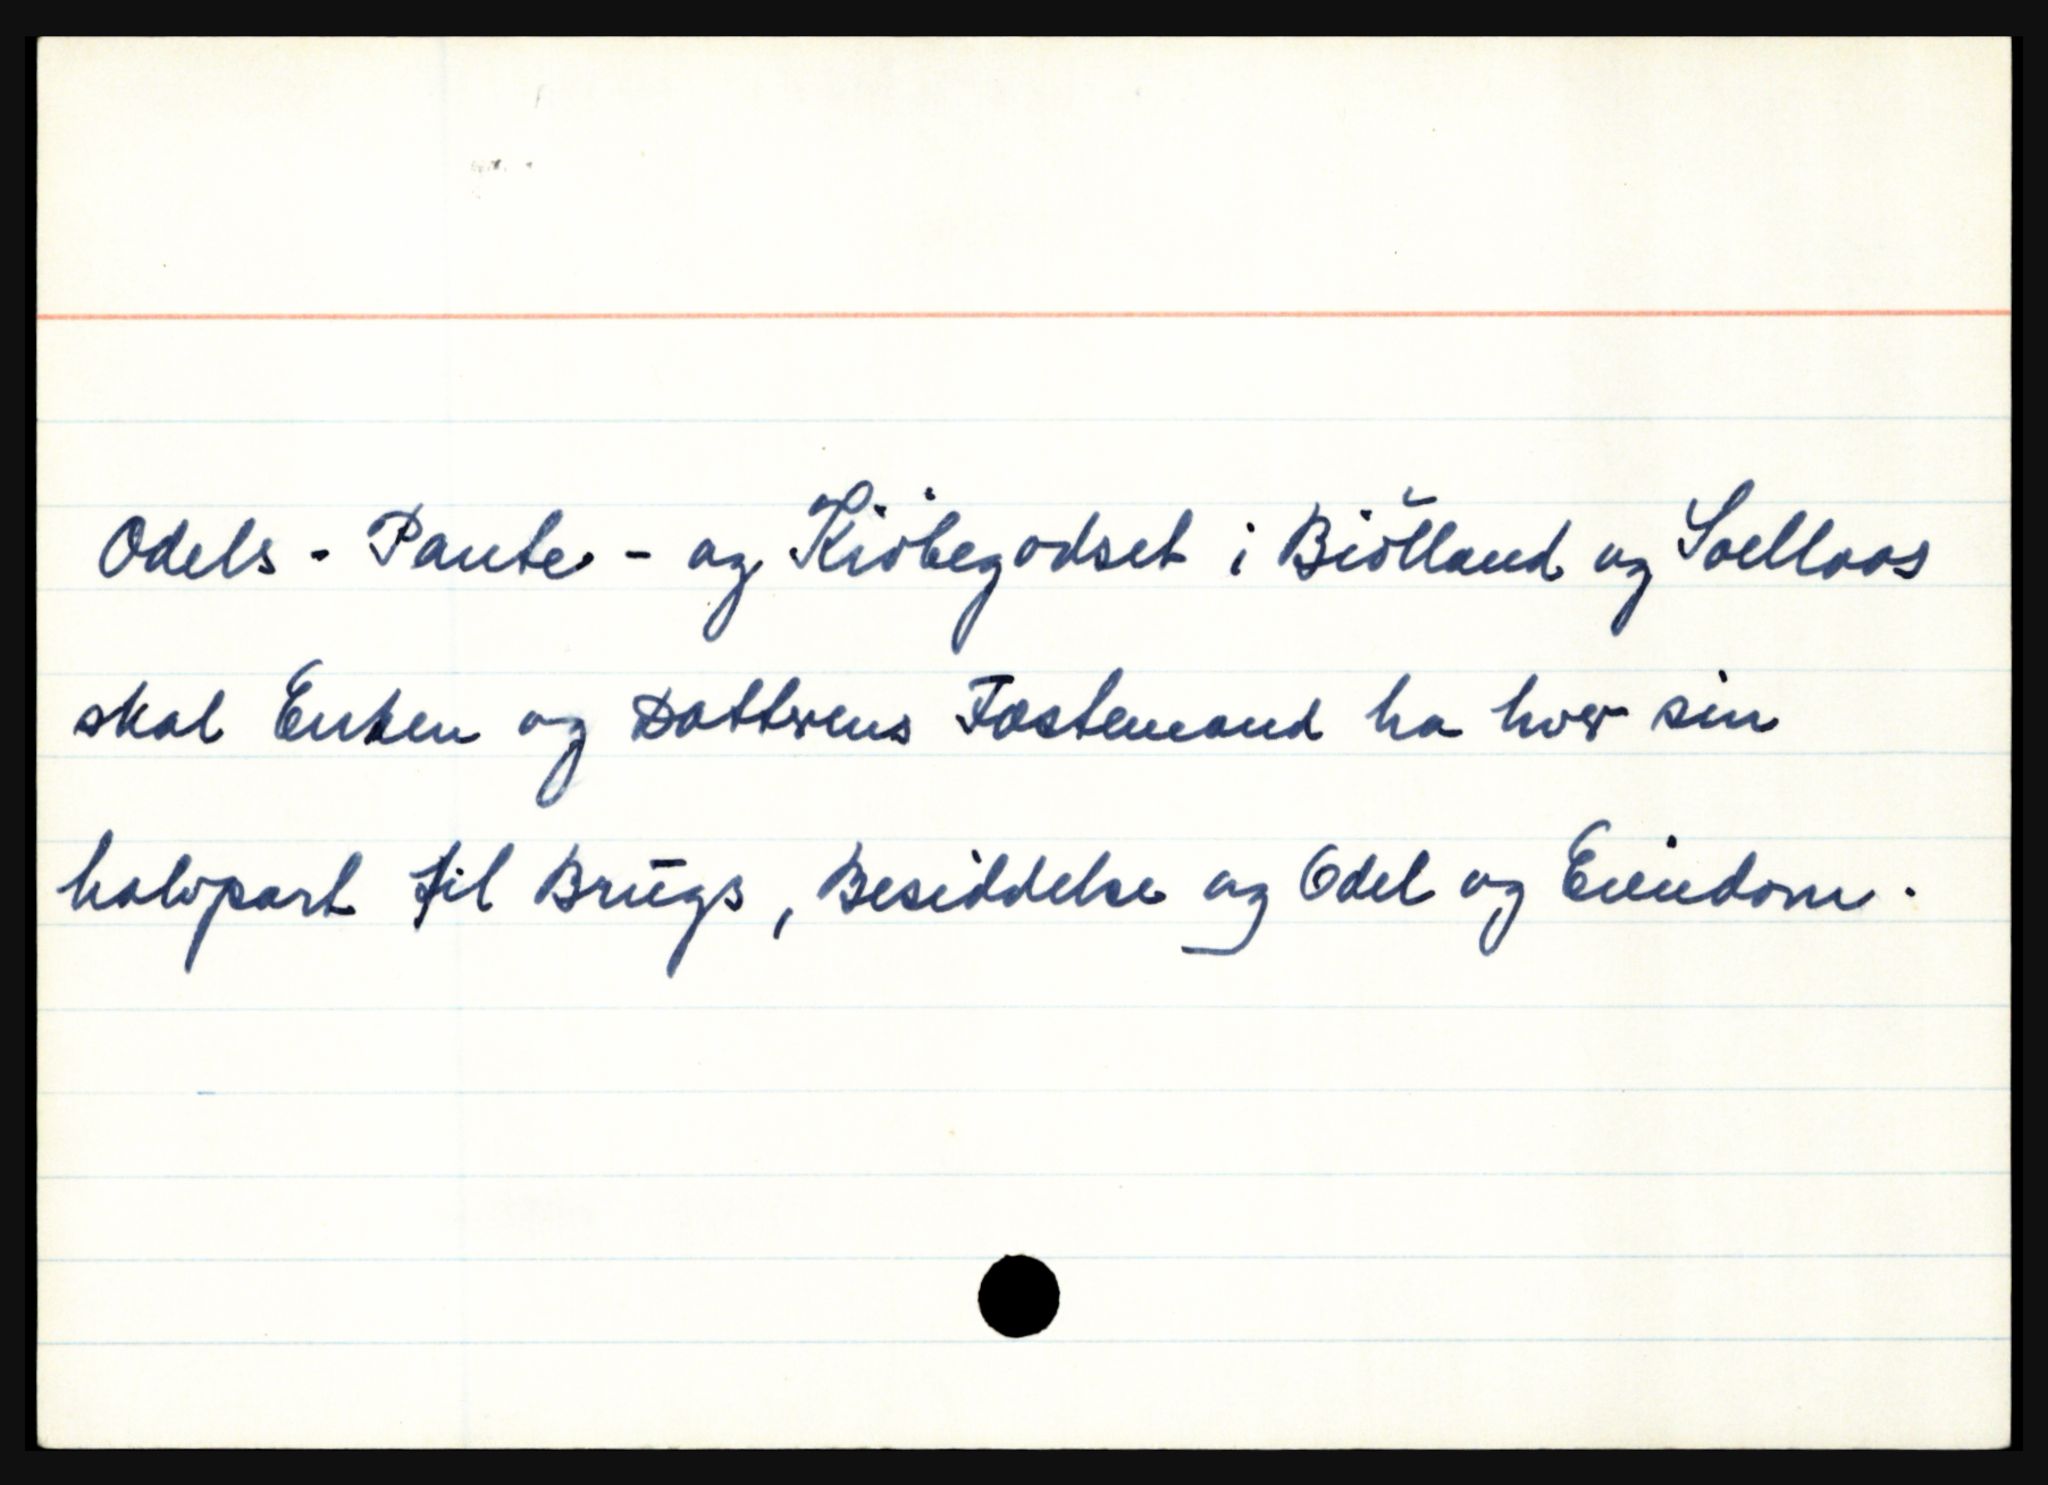 Odels - Pante - og Kiöbegodset i Biölland og Soellaas
skal Enken og Datterens Fæstemand ha hver sin
halvpart til Brugs, Besiddelse og Odel og Eiendom.